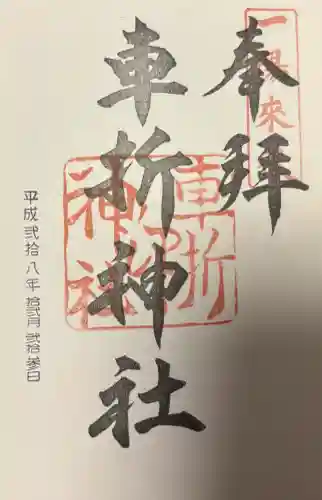 奉拝
一陽来
車折神社
車折
神社
平成弐拾八年 拾弐月 弐拾参日